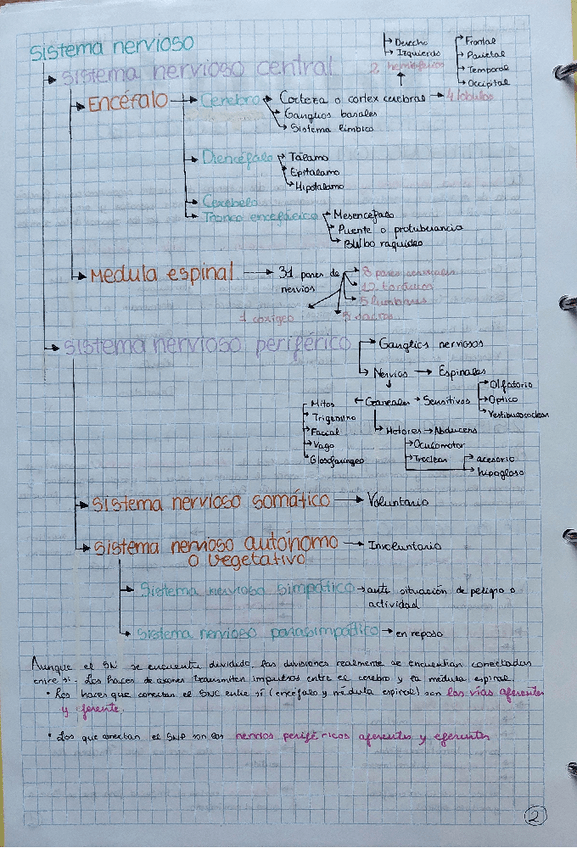 Sistema nervioso
Derecho
Izquierdo
2 hemisferios
Frontal
Parietal
Temporal
Occipital
4 lóbulos
Sistema nervioso central
Encéfalo
Cerebro
Corteza o cortex cerebras
Ganglios basales
Sistema límbico
Diencéfalo
Tálamo
Epitálamo
Hipotálamo
Cerebelo
Tronco encefálico
Mesencéfalo
Puente o protuberancia
Bulbo raquídeo
Médula espinal
31 pares de
nervios
8 pares cervicales
12 torácicos
5 lumbares
5 sacros
1 coxígeo
Sistema nervioso periférico
Ganglios nerviosos
Nervios
Espinales
Craneales
Sensitivos
Olfatorio
Optico
Vestibulococlear
Mixtos
Trigémino
Facial
Vago
Glosofaríngeo
Motores
Abducens
Oculomotor
Troclear
acesorio
hipogloso
Sistema nervioso somático
Voluntario
Sistema nervioso autónomo
o vegetativo
Involuntario
Sistema nervioso simpático
ante situación de peligro o
actividad
Sistema nervioso parasimpático
en reposo
Aunque el SN se encuentre dividido, las divisiones realmente se encuentran conectadas
entre sí. Los haces de axones transmiten impulsos entre el cerebro y la médula espinal
• Los haces que conectan el SNC entre sí (encéfalo y médula espinal) son las vías aferentes
y eferente.
• Los que conectan el SNP son los nervios periféricos aferentes y eferentes
2